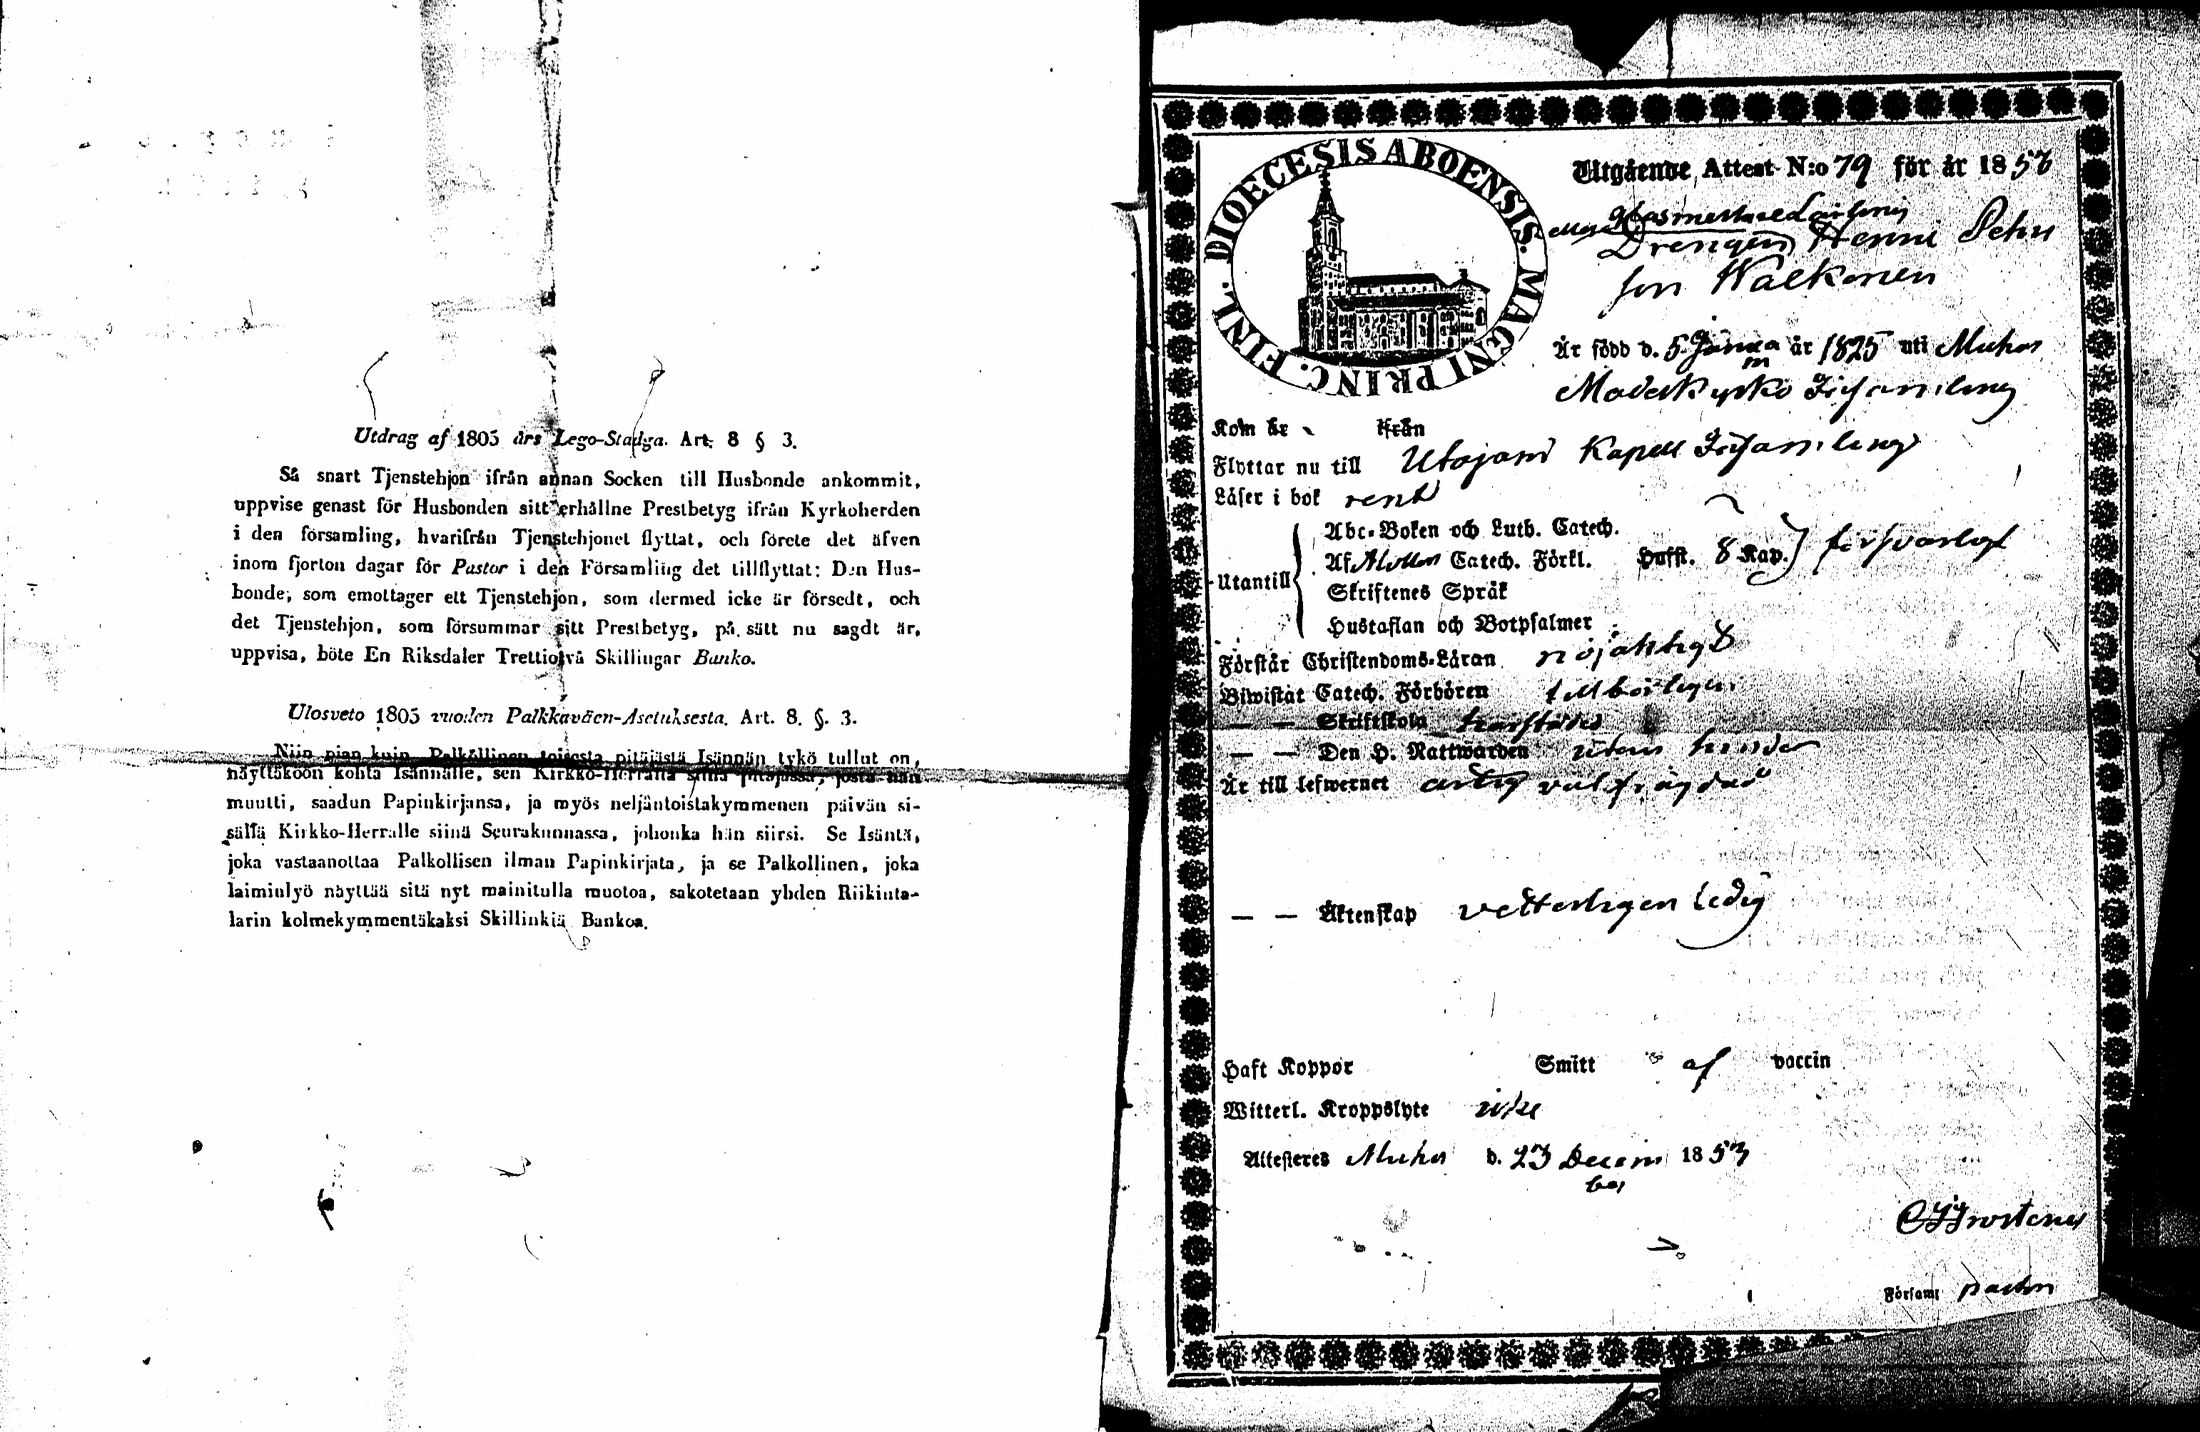 Utdrag af 1805 års Lego-Stadga. Art. 8 § 3.
Så snart Tjenstehjon ifrån annan Socken till Husbonde ankommit,
uppvise genast för Husbonden sitt erhållne Prestbetyg ifrån Kyrkoherden
i den församling, hvarifrån Tjenstehjonet flyttat, och förete det äfven
inom fjorton dagar för Pastor i den Församling det tillflyttat: Den Hus-
bonde, som emottager ett Tjenstehjon, som dermed icke är försedt, och
det Tjenstehjon, som försummar sitt Prestbetyg, på sätt nu sagdt är,
uppvisa, böte En Riksdaler Trettiotvå Skillingar Banko.
Ulosveto 1805 vuoden Palkkaväen-Asetuksesta. Art. 8. §. 3.
Niin pian kuin Palkollinen toisesta pitäjästä Isännän tykö tullut on,
näyttäköön kohta Isännälle, sen Kirkko-Herralta siinä pitäjässä, josta hän
muutti, saadun Papinkirjansa, ja myös neljäntoistakymmenen päivän si-
sällä Kirkko-Herralle siinä Seurakunnassa, johonka hän siirsi. Se Isäntä,
joka vastaanottaa Palkollisen ilman Papinkirjata, ja se Palkollinen, joka
laiminlyö näyttää sitä nyt mainitulla muotoa, sakotetaan yhden Riikinta-
larin kolmekymmentäkaksi Skillinkiä Bankoa.
DIOECESIS ABOENSIS. MAGNI PRINC. FINL.
Utgående Attest N:o 79 för år 1853
Drengen Henric Pehr
son Walkonen
Är född d. 5 Janua år 1825 uti Muhos
Moderkyrko Församling
Kom år från
Flyttar nu till Utajärvi Kapell Församling
Läser i bok rent
Utantill
Abc-Boken och Luth. Catech.
Af Catech. Förkl. Hufst. 8 Kap. försvarligt
Skriftenes Språk
Hustaflan och Botpsalmer
Förstår Christendoms-Läran nöjaktigt
Biwistat Catech. Förhören
— — Skriftskola
— — Den H. Nattwarden utan hinder
Är till lefwernet välfrägdad
— — Äktenskap vetterligen ledig
Haft Koppor Smitt af vaccin
Witterl. Kroppslyte icke
Attesteras Muhos d. 23 Decem 1853
ber
Församl pastor